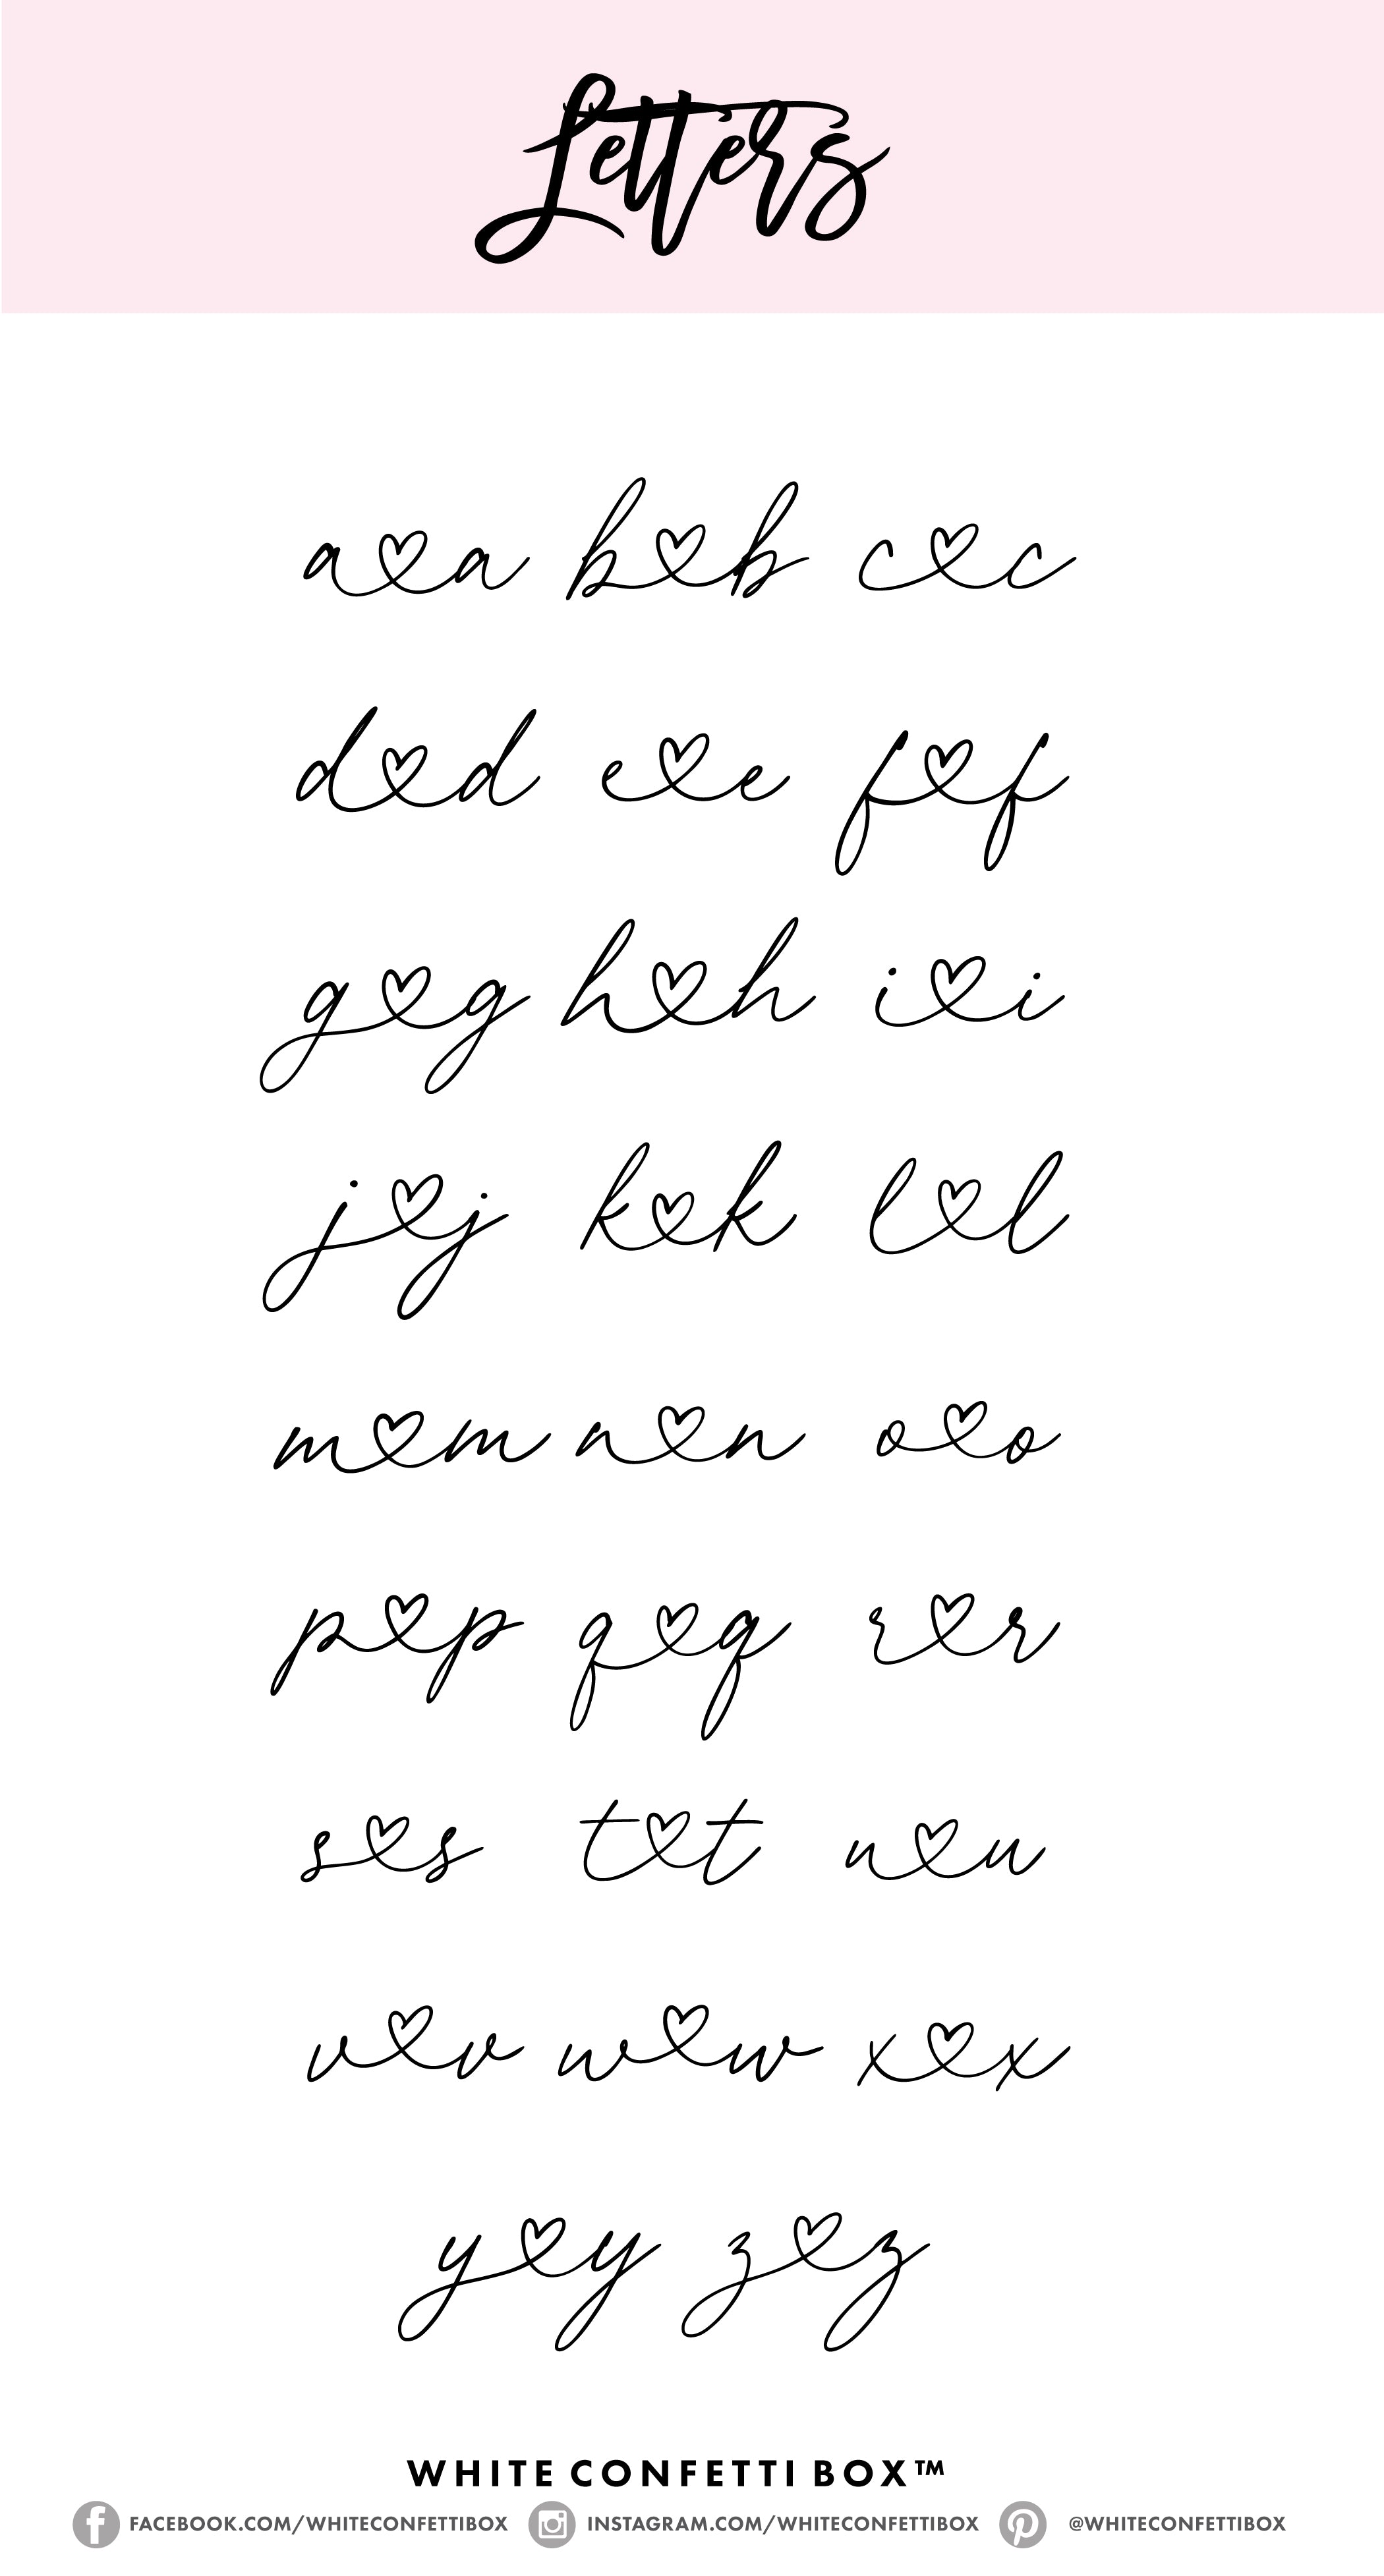 Letters
a♡a b♡b c♡c
d♡d e♡e f♡f
g♡g h♡h i♡i
j♡j k♡k l♡l
m♡m n♡n o♡o
p♡p q♡q r♡r
s♡s t♡t u♡u
v♡v w♡w x♡x
y♡y z♡z
WHITE CONFETTI BOX™
FACEBOOK.COM/WHITECONFETTIBOX INSTAGRAM.COM/WHITECONFETTIBOX @WHITECONFETTIBOX